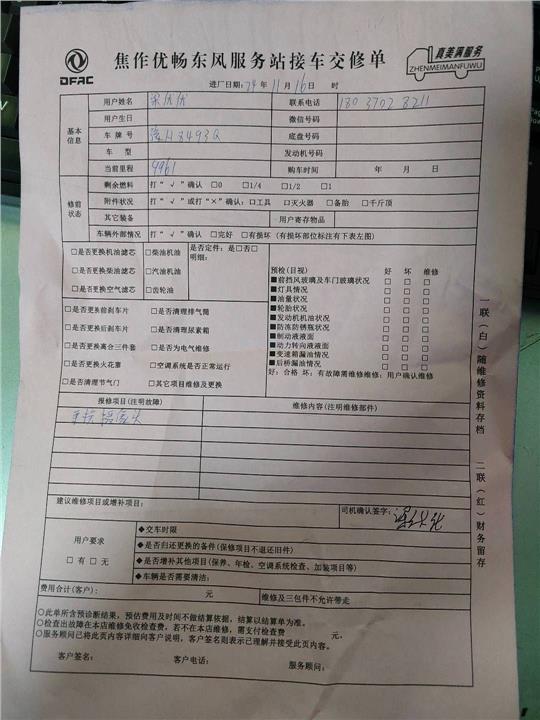 DFAC
焦作优畅东风服务站接车交修单
真美满服务
ZHENMEIMANFUWU
进厂日期:24年11月16日 时
基本信息
用户姓名
联系电话
用户生日
微信号码
车牌号 豫H8493Q
底盘号码
车型
发动机号码
当前里程 9961
购车时间 年 月 日
修前状态
剩余燃料 打"√"确认 □0 □1/4 □1/2 □1
附件状况 打"√"或打"×"确认:□工具 □灭火器 □备胎 □千斤顶
其它装备
用户寄存物品
车辆外部情况 打"√"确认 □完好 □有损坏(有损坏部位标注有下表左图)
□是否更换机油滤芯 □柴油机油
是否定件:是□否□
明细:
□是否更换柴油滤芯 □汽油机油
□是否更换空气滤芯 □齿轮油
□是否更换前刹车片 □是否清理排气筒
□是否更换后刹车片 □是否清理尿素箱
□是否更换离合三件套 □是否为电气维修
□是否更换火花塞 □空调系统是否正常运行
□是否清理节气门 □其它项目维修及更换
预检(目视) 好 坏 维修
■前挡风玻璃及车门玻璃状况 □ □ □
■灯具情况 □ □ □
■油量状况 □ □ □
■轮胎状况 □ □ □
■发动机机油状况 □ □ □
■防冻防锈瓶状况 □ □ □
■制动液液面 □ □ □
■动力转向液液面 □ □ □
■变速箱漏油情况 □ □ □
■后桥漏油情况 □ □ □
好:合格 坏:有故障需维修维修:用户确认维修
报修项目(注明故障)
维修内容(注明维修部件)
建议维修项目或增补项目:
司机确认签字:
用户要求
□有 □无
◆交车时限
◆是否归还更换的备件(保修项目不退还旧件)
◆是否增补其他项目(保养、年检、空调系统检查、加装项目等)
◆车辆是否需要清洁:
费用合计(客户): 元
维修及三包件不允许带走
○此单所含预诊断结果,预估费用及时间不做结算依据,结算以结算单为准。
○检查出故障在本店维修免收检查费,若不在本店维修,需支付检查费 元,
○服务顾问已将此页内容详细向客户说明,客户签名则表示已理解并接受此页内容。
客户签名: 客户电话: 服务顾问:
一联(白)随维修资料存档
二联(红)财务留存